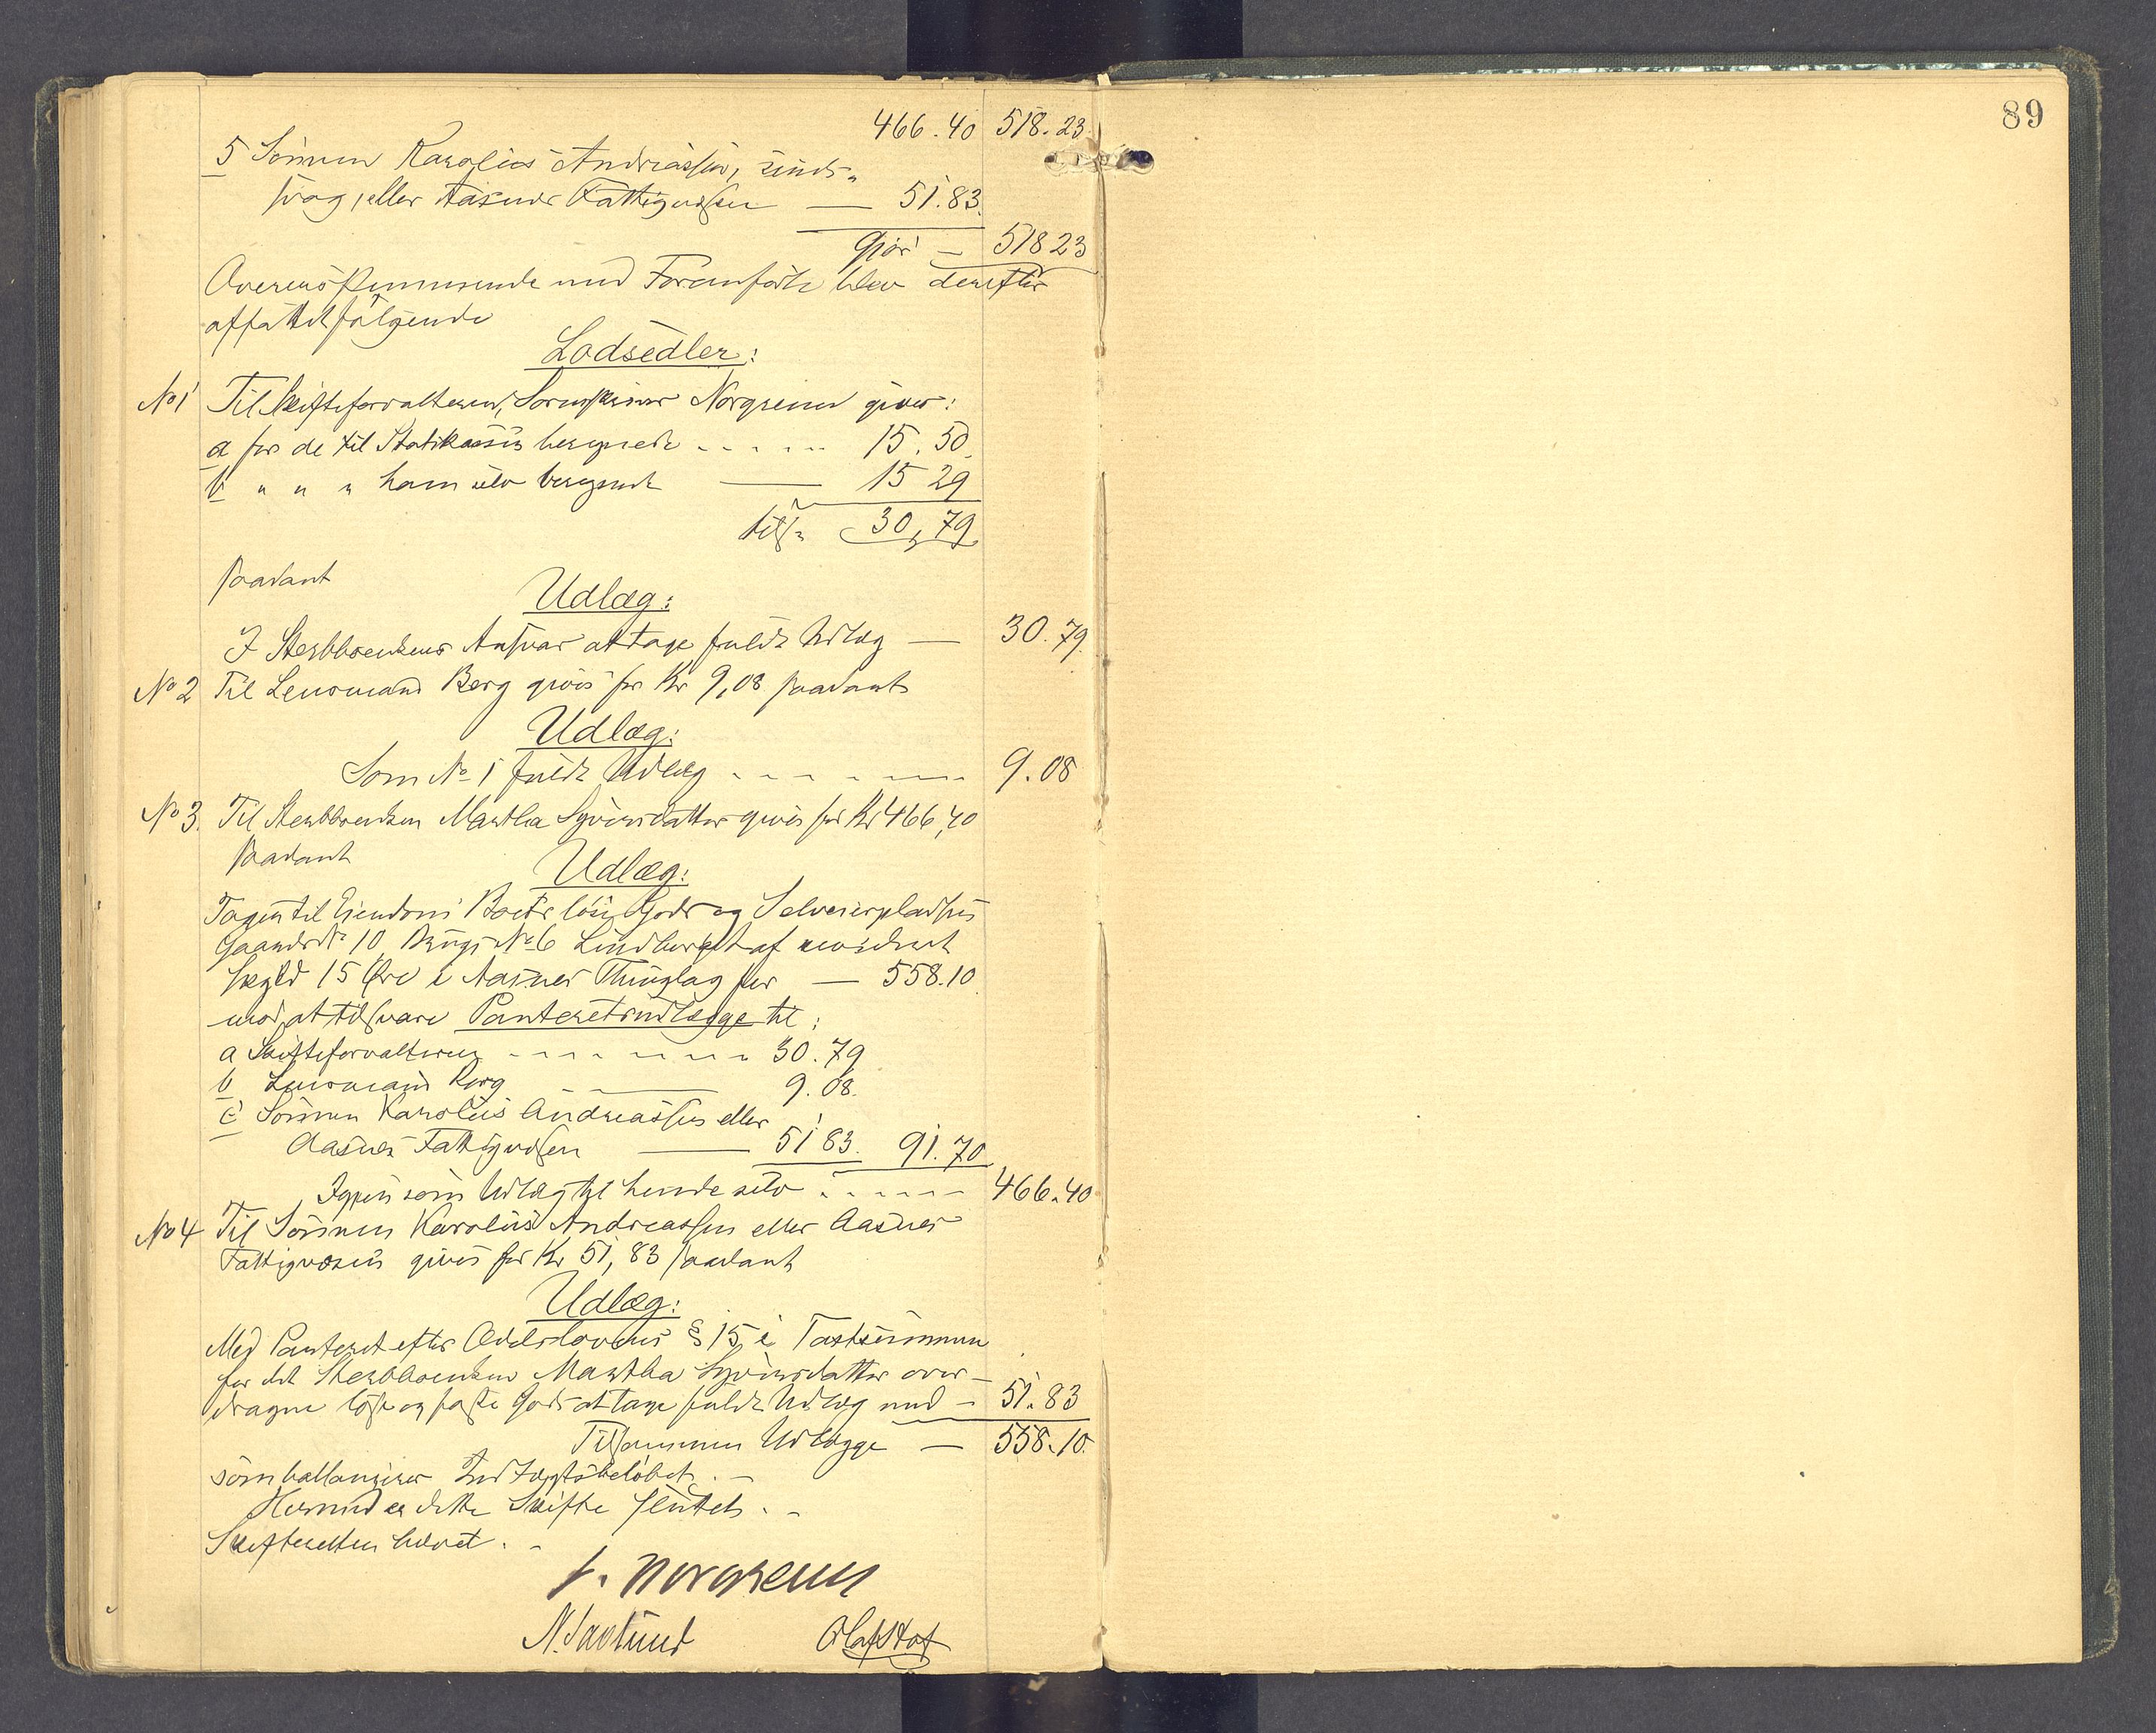 89
466.40 518.23
5 Sönnen Karolius Andreassen, sinds-
svag, eller Aasnes Fattigvæsen — 51.83
Gjör — 518 23
Overensstemmende med Foranförte blev derefter
affattet følgende
Lodsedler:
No 1 Til Skifteforvalteren, Sorenskriver Norgrenn gives:
a for de til Statskassen beregnede 15.50
b " " " ham selv beregnede — 15 29
tils. 30,79
saadant
Udlæg:
I Sterbboenkens Ansvar at tage fuldt Udlæg — 30.79
No 2 Til Lensmand Berg gives for Kr 9,08 saadant
Udlæg:
Som No 1 fuldt Udlæg 9.08
No 3. Til Sterbboenken Martha Syversdatter gives for Kr 466,40
saadant
Udlæg:
Tages til Eiendom Boets löse Gods og Selveierpladsen
Gaards No 10, Brugs No 6 Lindberget af revideret
Skyld 15 Øre i Aasnes Thinglag for — 558.10
mod at tilsvare Panteretsudlægge til:
a Skifteforvalteren 30.79
b Lensmand Berg — 9.08.
c Sönnen Karolius Andreassen eller
Aasnes Fattigvæsen — 51 83. 91.70
Igjen som Udlæg til hende selv 466.40
No 4 Til Sönnen Karolius Andreassen eller Aasnes
Fattigvæsen gives for Kr 51,83 saadant
Udlæg:
Med Panteret efter Odelslovens § 15 i Taxtsummen
for det Sterbboenken Martha Syversdatter over-
dragne löse og faste Gods at tage fuldt Udlæg med – 51.83
Tilsammen Udlægge — 558.10.
som ballanserer Indtægtsbelöbet. –
Hermed er dette Skifte sluttet. –
Skifteretten hævet. –
Norgrenn
N. Savlund Olaf Hof